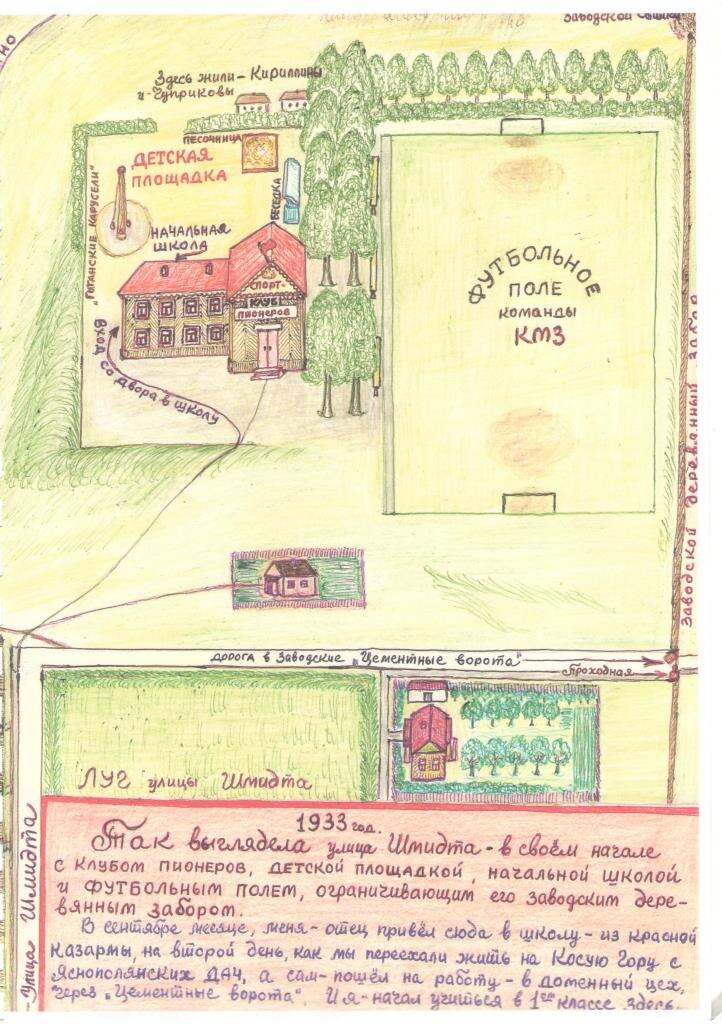 Заводской
но
Здесь жили - Кириллины
и - Чуприковы
Песочница
Детская
площадка
Беседка
"Гиганские карусели"
Начальная
школа
Спорт-
клуб
пионеров
Вход со двора в школу
Футбольное
поле
команды
КМЗ
Заводской деревянный забор
дорога в Заводские „Цементные ворота"
Проходная
Луг улицы Шмидта
Улица Шмидта
1933 год.
Так выглядела улица Шмидта - в своём начале
с клубом пионеров, детской площадкой, начальной школой
и футбольным полем, ограничивающим его заводским дере-
вянным забором.
В сентябре месяце, меня - отец привёл сюда в школу - из красной
казармы, на второй день, как мы переехали жить на Косую Гору с
Яснополянских дач, а сам - пошёл на работу - в доменный цех,
через „Цементные ворота". И я - начал учиться в 1ом классе здесь.